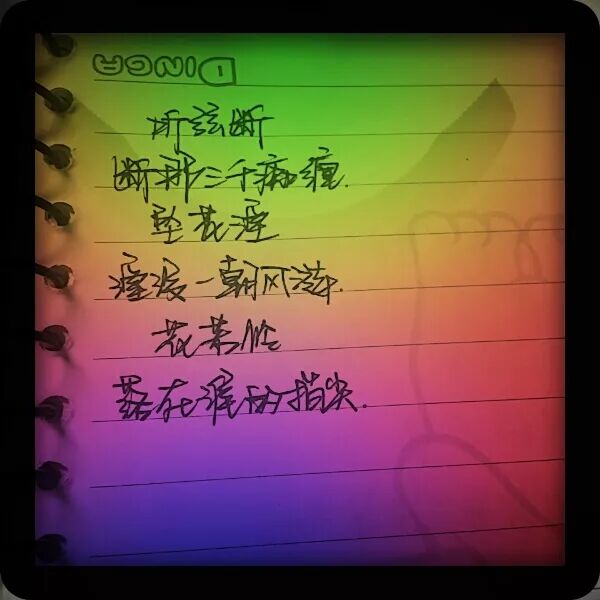 DINGA
听弦断
断那三千痴缠.
坠花湮
湮没一朝风涟.
花若怜
落在谁的指尖.